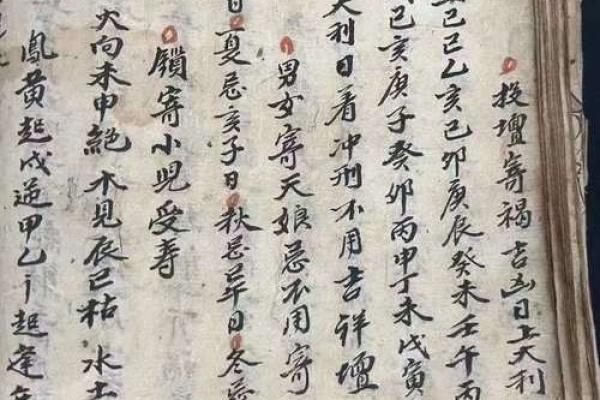 投壇寄禍吉凶日上大利
己巳乙亥己卯庚辰癸未壬午丙
己亥庚子癸卯丙申丁未戊寅
大利日看冲刑不用吉祥壇
男女寄天娘忌不用寄
日夏忌亥子日秋忌日冬忌
鎖寄小児受寿
火向未申絕木見辰巳枯水土
鳳黄起戊逆甲乙起逢